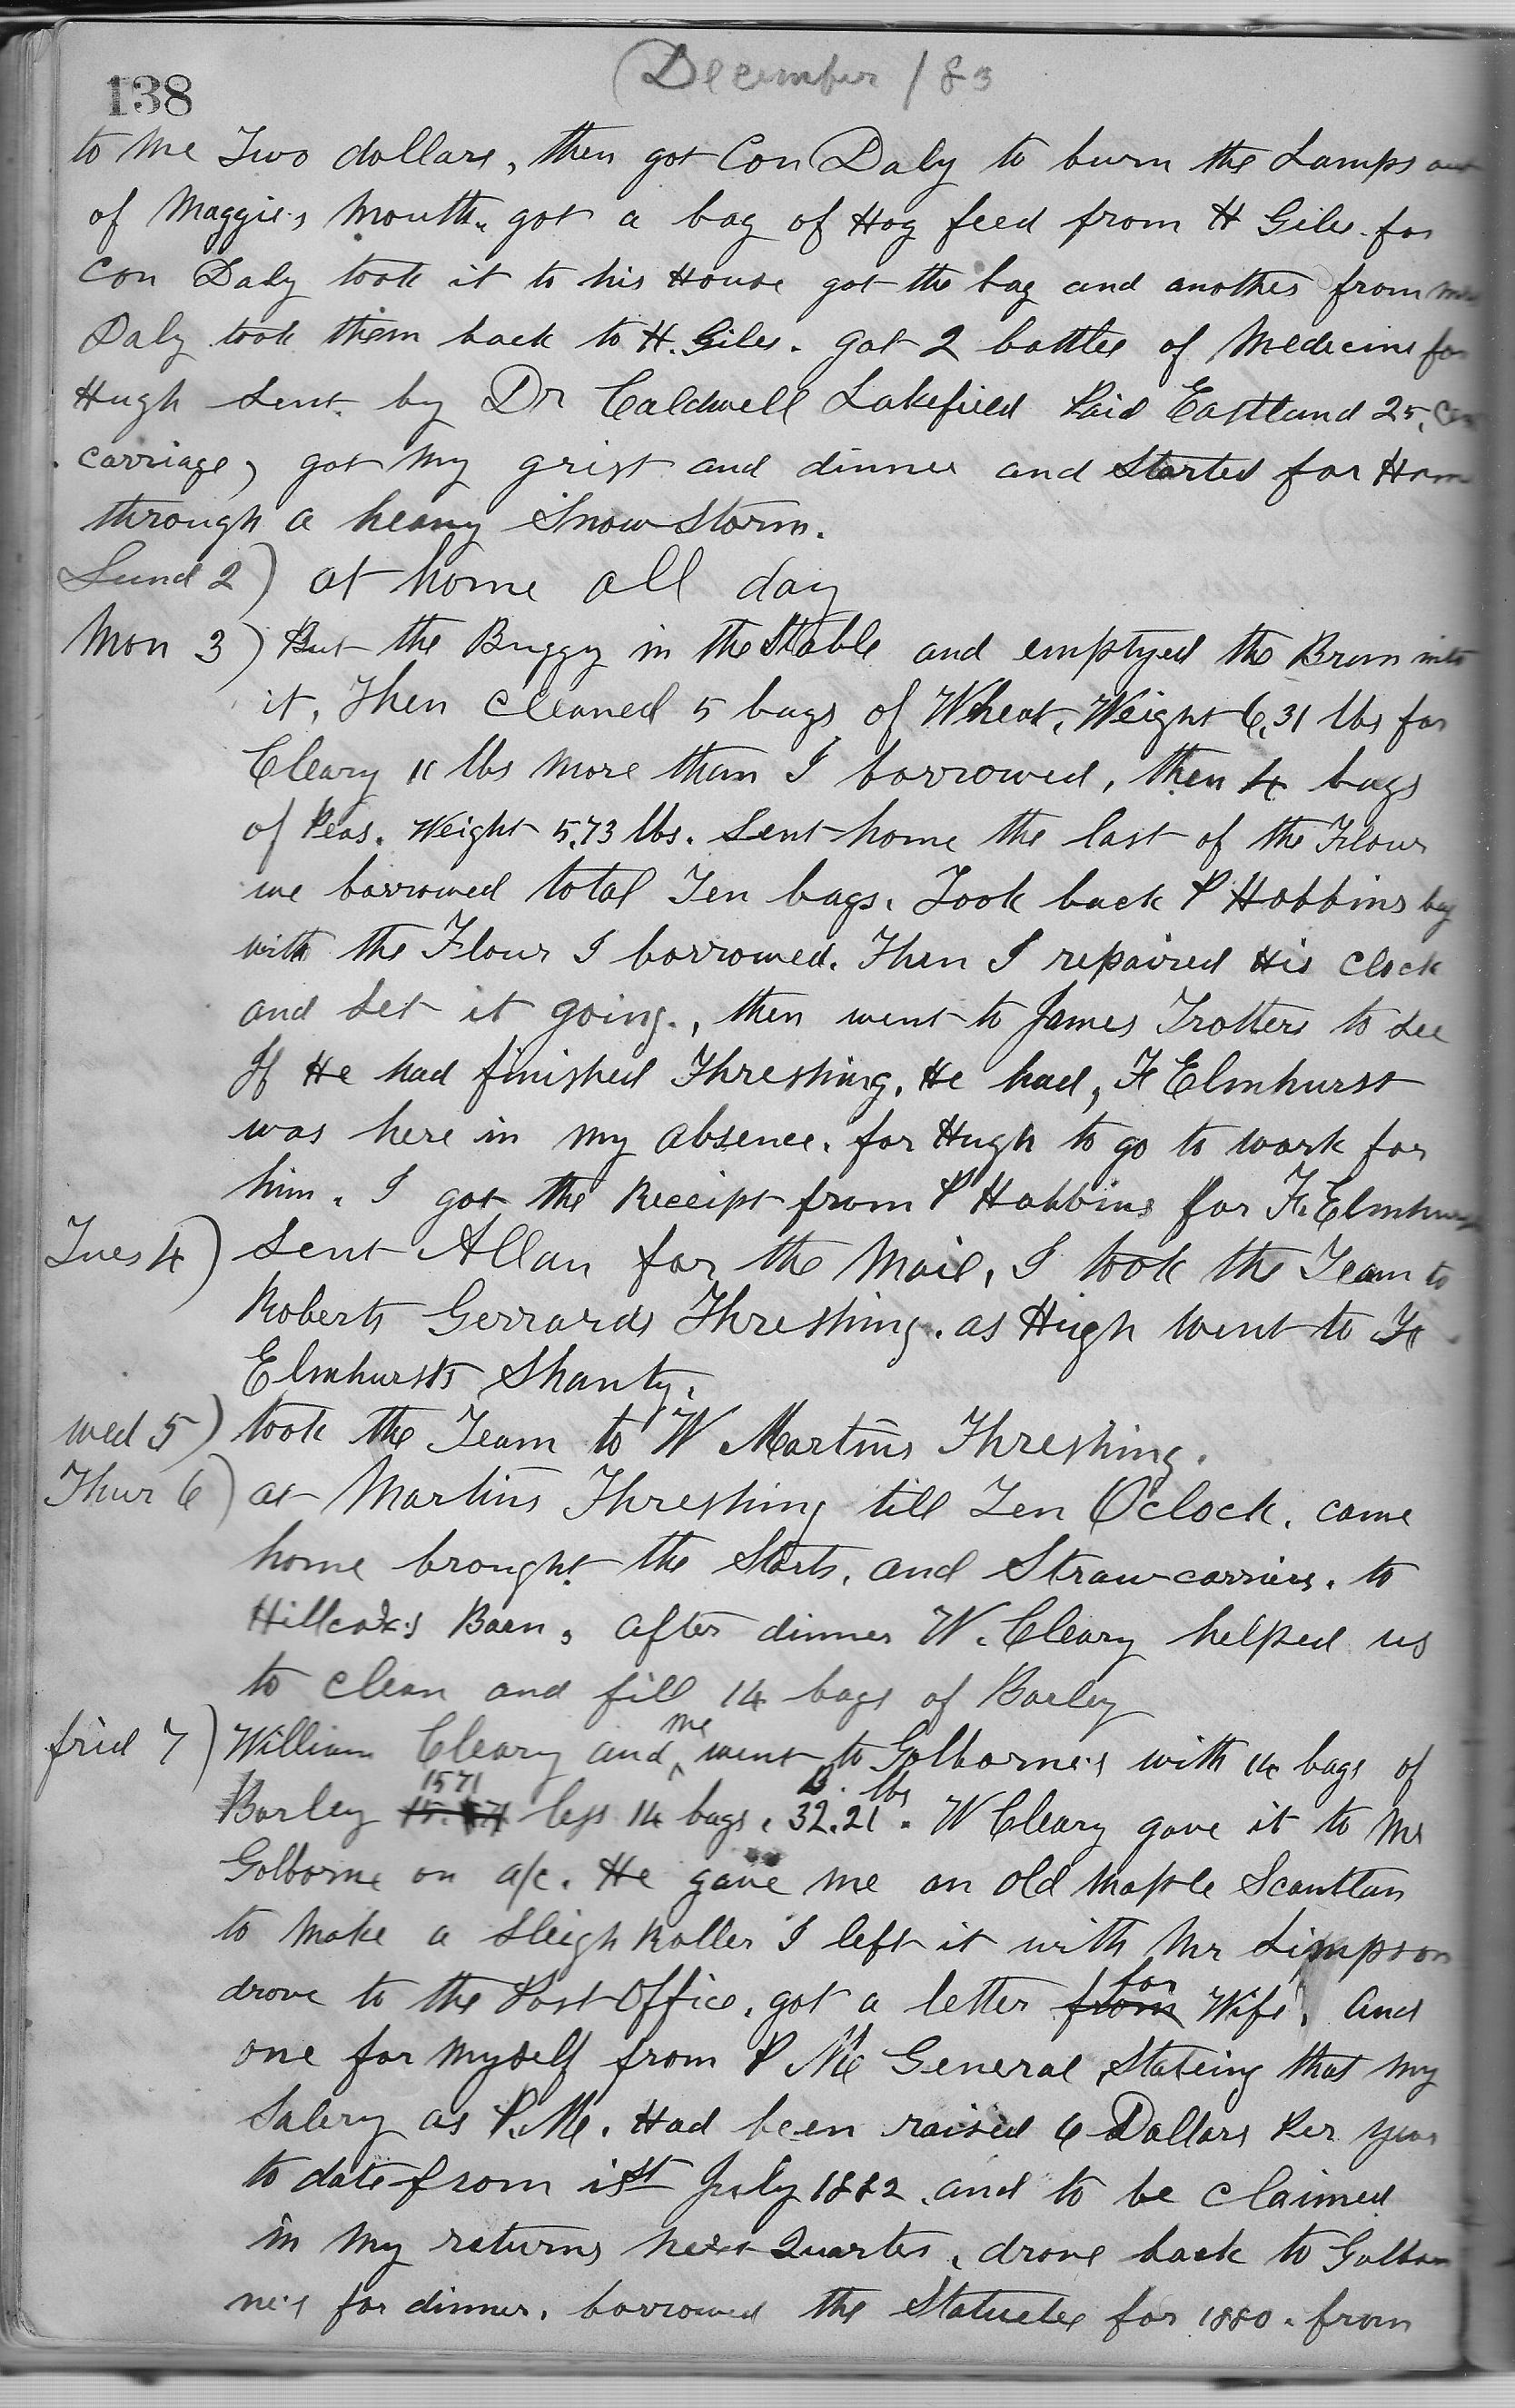 138
December / 83
to me Two dollars, then got Con Daly to burn the Lamps out
of Maggie's mouth. got a bag of Hog feed from H Giles for
Con Daly took it to his House got the bag and another from Mrs
Daly took them back to H. Giles. got 2 bottles of Medecine for
Hugh Sent by Dr Caldwell Lakefield Paid Eastland 25,
carriage, got my grist and dinner and Started for Home
through a heavy Snow Storm.
Sund 2) at home all day
Mon 3) Put the Buggy in the Stable and emptyed the Bran into
it, Then cleaned 5 bags of Wheat, Weight 6,31 lbs for
Cleary 11 lbs more than I borrowed, then 4 bags
of Peas. Weight 5,73 lbs. Sent home the last of the Flour
we borrowed total Ten bags. Took back P Hobbins bag
with the Flour I borrowed. Then I repaired His clock
and Set it going., then went to James Trotters to See
If He had finished Threshing. He had, F Elmhurst
was here in my absence. for Hugh to go to work for
him. I got the Receipt from P Hobbins for F. Elmhurst
Tues 4) Sent Allan for the Mail, I took the Team to
Roberts Gerrards Threshing. as Hugh went to F
Elmhursts Shanty.
Wed 5) took the Team to W Martins Threshing.
Thur 6) at Martins Threshing till Ten O'clock. came
home brought the Starts, and Straw carriers. to
Hillcox's Baen, after dinner W. Cleary helped us
to clean and fill 14 bags of Barley
frid 7) William Cleary and me went to Golborne's with 14 bags of
Barley 1571 less 14 bags. B. 32. lbs 21. W Cleary gave it to Mr
Golborne on a/c. He gave me an old Maple Scantlan
to make a Sleigh Roller I left it with Mr Simpson
drove to the Post Office, got a letter from for Wife, And
one for myself from P M General Stateing that my
Salery as P.M. Had been raised 6 Dollars Per year
to date from 1st July 1882. and to be claimed
in my returns next Quarter, drove back to Golbor
ne's for dinner. borrowed the Statuetes for 1880. from